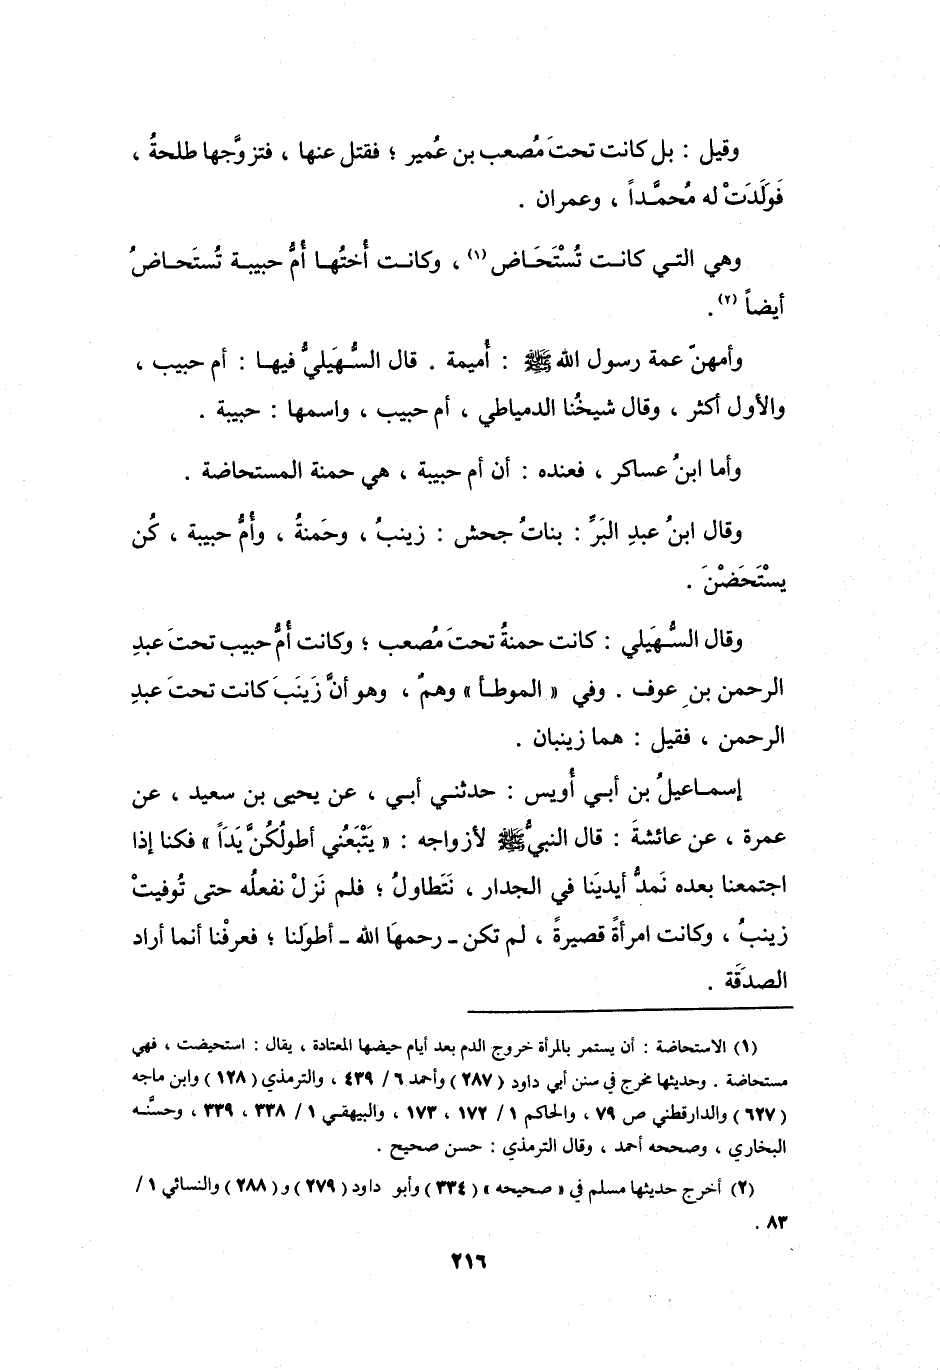 وقيل : بل كانت تحتَ مُصعب بن عُمير ؛ فقتل عنها ، فتزوَّجها طلحةُ ،
فَولَدَتْ له مُحمَّـداً ، وعمران .
وهي التـي كانـت تُسْتَحَـاض (١) ، وكانـت أُختُهـا أُمُّ حبيبـة تُستَحـاضُ
أيضاً (٢) .
وأمهنّ عمة رسول الله ﷺ : أُميمة . قال السُّـهَيليُّ فيهـا : أم حبيب ،
والأول أكثر ، وقال شيخُنا الدمياطي ، أم حبيب ، واسمها : حبيبة .
وأما ابنُ عساكر ، فعنده : أن أم حبيبة ، هي حمنة المستحاضة .
وقال ابنُ عبدِ البَرِّ : بناتُ جحش : زينبُ ، وحَمنةُ ، وأُمُّ حبيبة ، كُن
يستَحَضْنَ .
وقال السُّـهَيلي : كانت حمنةُ تحتَ مُصعب ؛ وكانت أُمُّ حبيب تحتَ عبدِ
الرحمن بنِ عوف . وفي « الموطـأ » وهمٌ ، وهو أنَّ زَينَبَ كانت تحتَ عبدِ
الرحمن ، فقيل : هما زينبان .
إسمـاعيلُ بن أبـي أُويس : حدثنـي أبـي ، عن يحيى بن سعيد ، عن
عمرة ، عن عائشةَ : قال النبيُّ ﷺ لأزواجه : « يَتْبَعُني أطولُكُنَّ يَدَاً » فكنا إذا
اجتمعنا بعده نَمدُّ أيديَنا في الجدار ، نَتَطاولُ ؛ فلم نَزلْ نفعلُه حتى تُوفيتْ
زينبُ ، وكانت امرأةً قصيرةً ، لم تكن ـ رحمهَا الله ـ أطولَنا ؛ فعرفْنا أنما أراد
الصدَقَة .
(١) الاستحاضة : أن يستمر بالمرأة خروج الدم بعد أيام حيضها المعتادة ، يقال : استحيضت ، فهي
مستحاضة . وحديثها مخرج في سنن أبي داود ( ٢٨٧ ) وأحمد ٦ / ٤٣٩ ، والترمذي ( ١٢٨ ) وابن ماجه
( ٦٢٧ ) والدارقطني ص ٧٩ ، والحاكم ١ / ١٧٢ ، ١٧٣ ، والبيهقـي ١ / ٣٣٨ ، ٣٣٩ ، وحسَّنـه
البخاري ، وصححه أحمد ، وقال الترمذي : حسن صحيح .
(٢) أخرج حديثها مسلم في « صحيحه » ( ٣٣٤ ) وأبو داود ( ٢٧٩ ) و ( ٢٨٨ ) والنسائي ١ /
٨٣ .
٢١٦